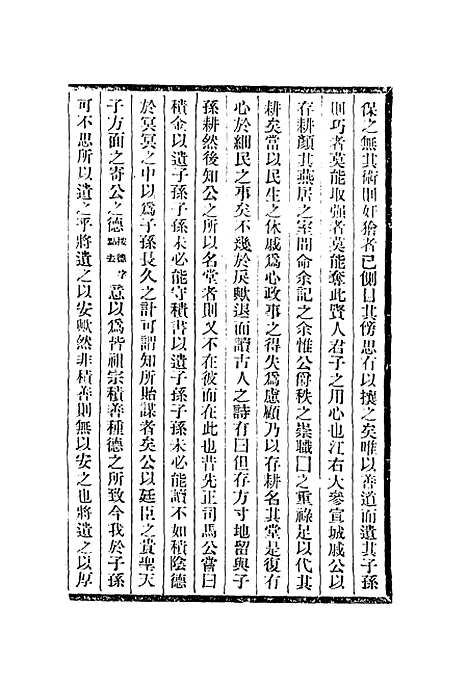 保之無其術則奸猾者已側目其傍思有以攘之矣唯以善道而遺其子孫
則巧者莫能取强者莫能奪此賢人君子之用心也江右大參宣城戚公以
存耕顏其燕居之室間命余記之余惟公爵秩之崇職囗之重祿足以代其
耕矣當以民生之休戚爲心政事之得失爲慮顧乃以存耕名其堂是復有
心於細民之事矣不幾於戾歟退而讀古人之詩有曰但存方寸地留與子
孫耕然後知公之所以名堂者則又不在彼而在此也昔先正司馬公嘗曰
積金以遺子孫子孫未必能守積書以遺子孫子孫未必能讀不如積陰德
於冥冥之中以爲子孫長久之計可謂知所貽謀者矣公以廷臣之貴聖天
子方面之寄公之德按德字點去意以爲皆祖宗積善種德之所致今我於子孫
可不思所以遺之乎將遺之以安歟然非積善則無以安之也將遺之以厚